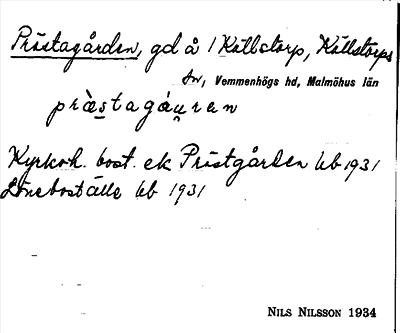 Prästagården, gd å 1 Källstorp, Källstorps
sn, Vemmenhögs hd, Malmöhus län
præ̀stagáu̯ren
Kyrkoh. bost. ek Prästgården hb 1931
Löneboställe hb 1931
NILS NILSSON 1934